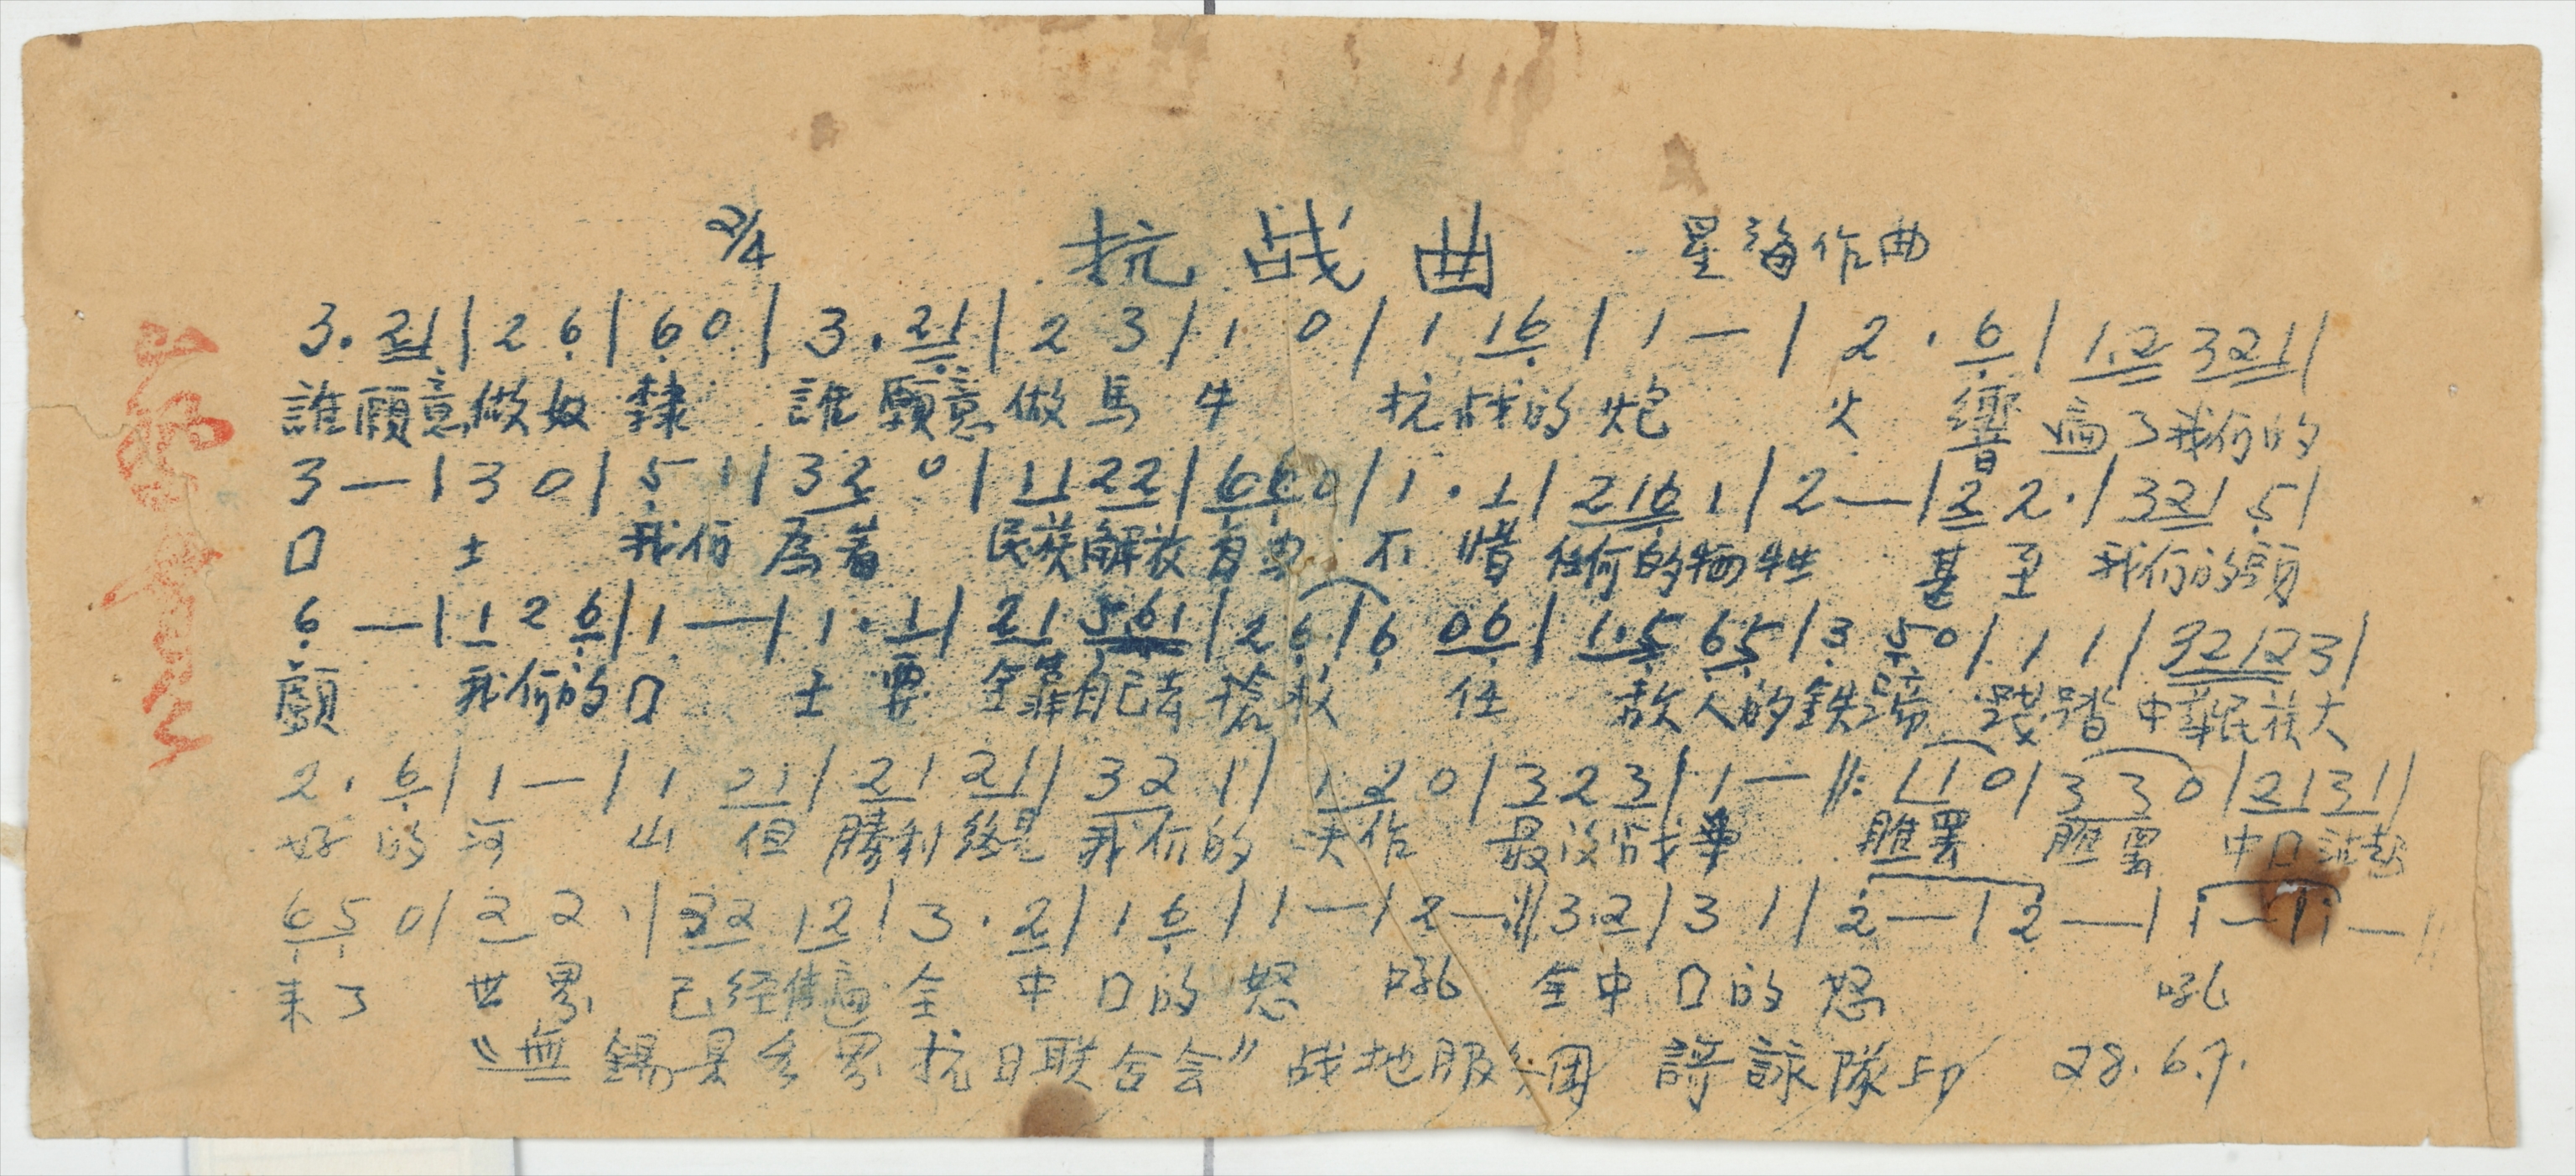 2/4 抗战曲 星海作曲
3. 21 | 2 6 | 6 0 | 3 . 21 | 2 3 | 1 0 | 1 16 | 1 — | 2 . 6 | 1.2 321 |
誰願意做奴隸 誰願意做馬牛 抗战的炮火響遍了我们的
3 — | 3 0 | 5 1 | 32 0 | 11 22 | 66 0 | 1 . 1 | 216 1 | 2 — | 2 2 . | 321 5 |
口土 我们為着 民族解放自由 不惜任何的牺牲 甚至我们的頭
6 — | 1 2 6 | 1 — | 1 . 1 | 21 561 | 2 6 | 6 06 | 1.5 65 | 3 50 | 1 1 | 3212 3 |
顱 我们的口土要全靠自己去搶救 任敌人的鉄蹄 踐踏中華民族大
2 . 6 | 1 — | 1 21 | 21 21 | 32 1 | 12 0 | 3 2 3 | 1 — ‖: 11 0 | 3 3 0 | 21 31 |
好的河山 但勝利終是我们的 天作最後战争 瞧罢 瞧罢 中口站起
65 0 | 2 2 . | 32 12 | 3 . 2 | 1 6 | 1 — | 2 — :‖ 3.2 | 3 1 | 2 — | 2 — | 1 — | 1 — ‖
来了 世界已经传遍全中口的怒吼 全中口的怒吼
“無錫県各界抗日联合会”战地服务团 謌詠隊印 28.6.7.